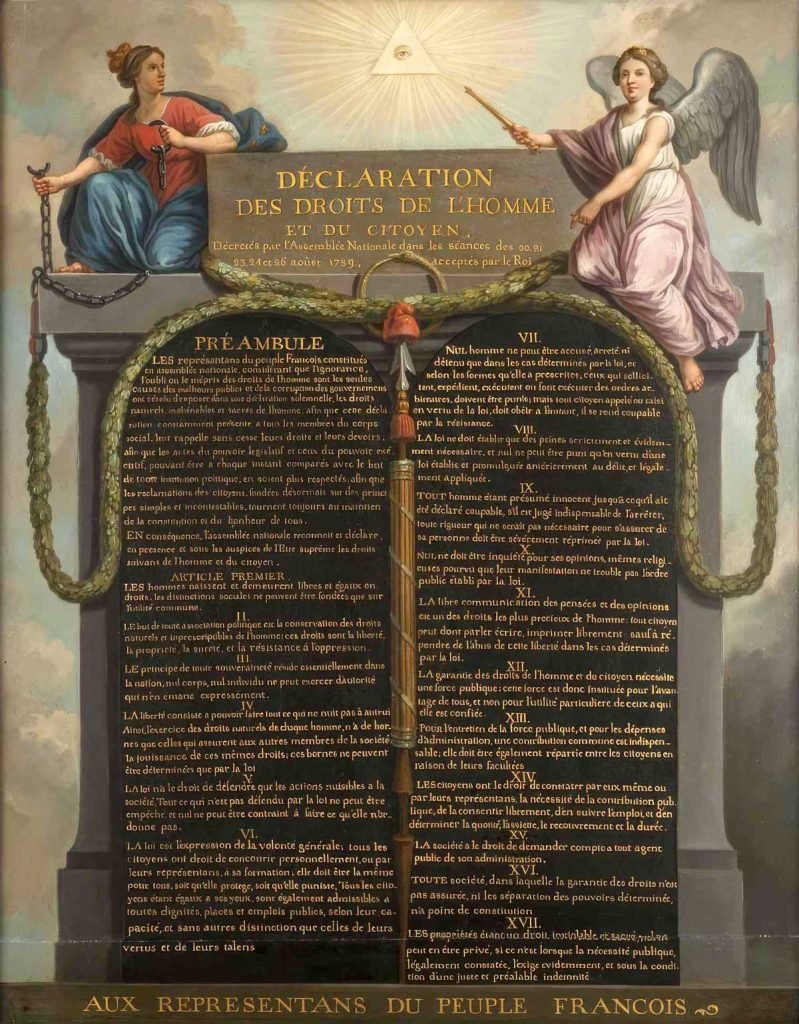 DÉCLARATION
DES DROITS DE L'HOMME
ET DU CITOYEN,
Décretés par l'Assemblée Nationale dans les séances des 20, 21
23, 24 et 26 aoûst 1789, acceptés par le Roi
PRÉAMBULE
LES représentans du peuple Francois, constitués
en assemblée nationale, considérant que l'ignorance,
l'oubli ou le mépris des droits de l'homme sont les seules
causes des malheurs publics et de la corruption des gouvernemens
ont résolu d'exposer dans une déclaration solennelle, les droits
naturels, inaliénables et sacrés de l'homme, afin que cette décla
ration, constamment présente a tous les membres du corps
social, leur rappelle sans cesse leurs droits et leurs devoirs,
afin que les actes du pouvoir legislatif et ceux du pouvoir exé
cutif, pouvant être a chaque instant comparés avec le but
de toute institution politique, en soient plus respectés; afin que
les reclamations des citoyens, fondées désormais sur des princi
pes simples et incontestables, tournent toujours au maintien
de la constitution et du bonheur de tous.
EN conséquence, l'assemblée nationale reconnoit et déclare,
en presence et sous les auspices de l'Etre suprême les droits
suivans de l'homme et du citoyen.
ARTICLE PREMIER.
LES hommes naissent et demeurent libres et égaux en
droits, les distinctions sociales ne peuvent être fondées que sur
l'utilité commune.
II.
LE but de toute association politique est la conservation des droits
naturels et imprescriptibles de l'homme; ces droits sont la liberté,
la propriété, la sureté, et la résistance à l'oppression.
III.
LE principe de toute souveraineté réside essentiellement dans
la nation, nul corps, nul individu ne peut exercer d'autorité
qui n'en émane expressément.
IV.
LA liberté consiste a pouvoir faire tout ce qui ne nuit pas à autrui
Ainsi, l'exercice des droits naturels de chaque homme, n'a de bor-
nes que celles qui assurent aux autres membres de la société
la jouissance de ces mêmes droits; ces bornes ne peuvent
être déterminées que par la loi
V.
LA loi n'a le droit de défendre que les actions nuisibles a la
société. Tout ce qui n'est pas défendu par la loi ne peut être
empêché et nul ne peut être contraint à faire ce qu'elle n'or-
donne pas.
VI.
LA loi est l'expression de la volonté générale; tous les
citoyens ont droit de concourir personnellement, ou par
leurs représentans, à sa formation; elle doit être la même
pour tous, soit qu'elle protege, soit qu'elle punisse, Tous les cito
yens étant égaux a ses yeux, sont également admissibles a
toutes dignités, places et emplois publics, selon leur ca-
pacité, et sans autres distinction que celles de leurs
vertus et de leurs talens
VII.
NUL homme ne peut être accusé, arreté, ni
détenu que dans les cas déterminés par la loi, et
selon les formes qu'elle a prescrites, ceux qui sollici-
tent, expédient, exécutent ou font exécuter des ordres ar-
bitraires, doivent être punis; mais tout citoyen appelé ou saisi
en vertu de la loi, doit obéir a l'instant, il se rend coupable
par la résistance.
VIII.
LA loi ne doit établir que des peines strictement et évidem-
ment nécessaire, et nul ne peut être puni qu'en vertu d'une
loi établie et promulguée antérierement au délit, et légale-
ment appliquée.
IX.
TOUT homme étant présumé innocent jusqu'à ce qu'il ait
été déclaré coupable, s'il est jugé indispensable de l'arrêter,
toute rigueur qui ne serait pas nécessaire pour s'assurer de
sa personne doit être sévèrement réprimée par la loi.
X.
NUL ne doit être inquiété pour ses opinions, mêmes religi-
euses pourvu que leur manifestation ne trouble pas l'ordre
public établi par la loi.
XI.
LA libre communication des pensées et des opinions
est un des droits les plus precieux de l'homme: tout citoyen
peut dont parler écrire, imprimer librement: sauf à ré-
pondre de l'abus de cette liberté dans les cas déterminés
par la loi.
XII.
LA garantie des droits de l'homme et du citoyen nécessite
une force publique; cette force est donc instituée pour l'avan-
tage de tous, et non pour l'utilité particuliere de ceux a qui
elle est confiée.
XIII.
Pour l'entretien de la force publique, et pour les dépenses
d'administration, une contribution commune est indispen-
sable; elle doit être également répartie entre les citoyens en
raison de leurs facultées
XIV.
LES citoyens ont le droit de constater par eux même ou
par leurs représentans, la nécessité de la contribution pub-
lique, de la consentir librement, d'en suivre l'emploi, et d'en
déterminer la quotité, l'assiette, le recouvrement et la durée.
XV.
LA société a le droit de demander compte a tout agent
public de son administration.
XVI.
TOUTE société, dans laquelle la garantie des droits n'est
pas assurée, ni les séparation des pouvoirs déterminée,
n'a point de constitution
XVII.
LES propriétés étant un droit inviolable et sacré, nul ne
peut en être privé, si ce n'est lorsque la nécessité publique,
légalement constatée, l'exige evidemment, et sous la condi-
tion d'une juste et préalable indemnité.
AUX REPRESENTANS DU PEUPLE FRANCOIS